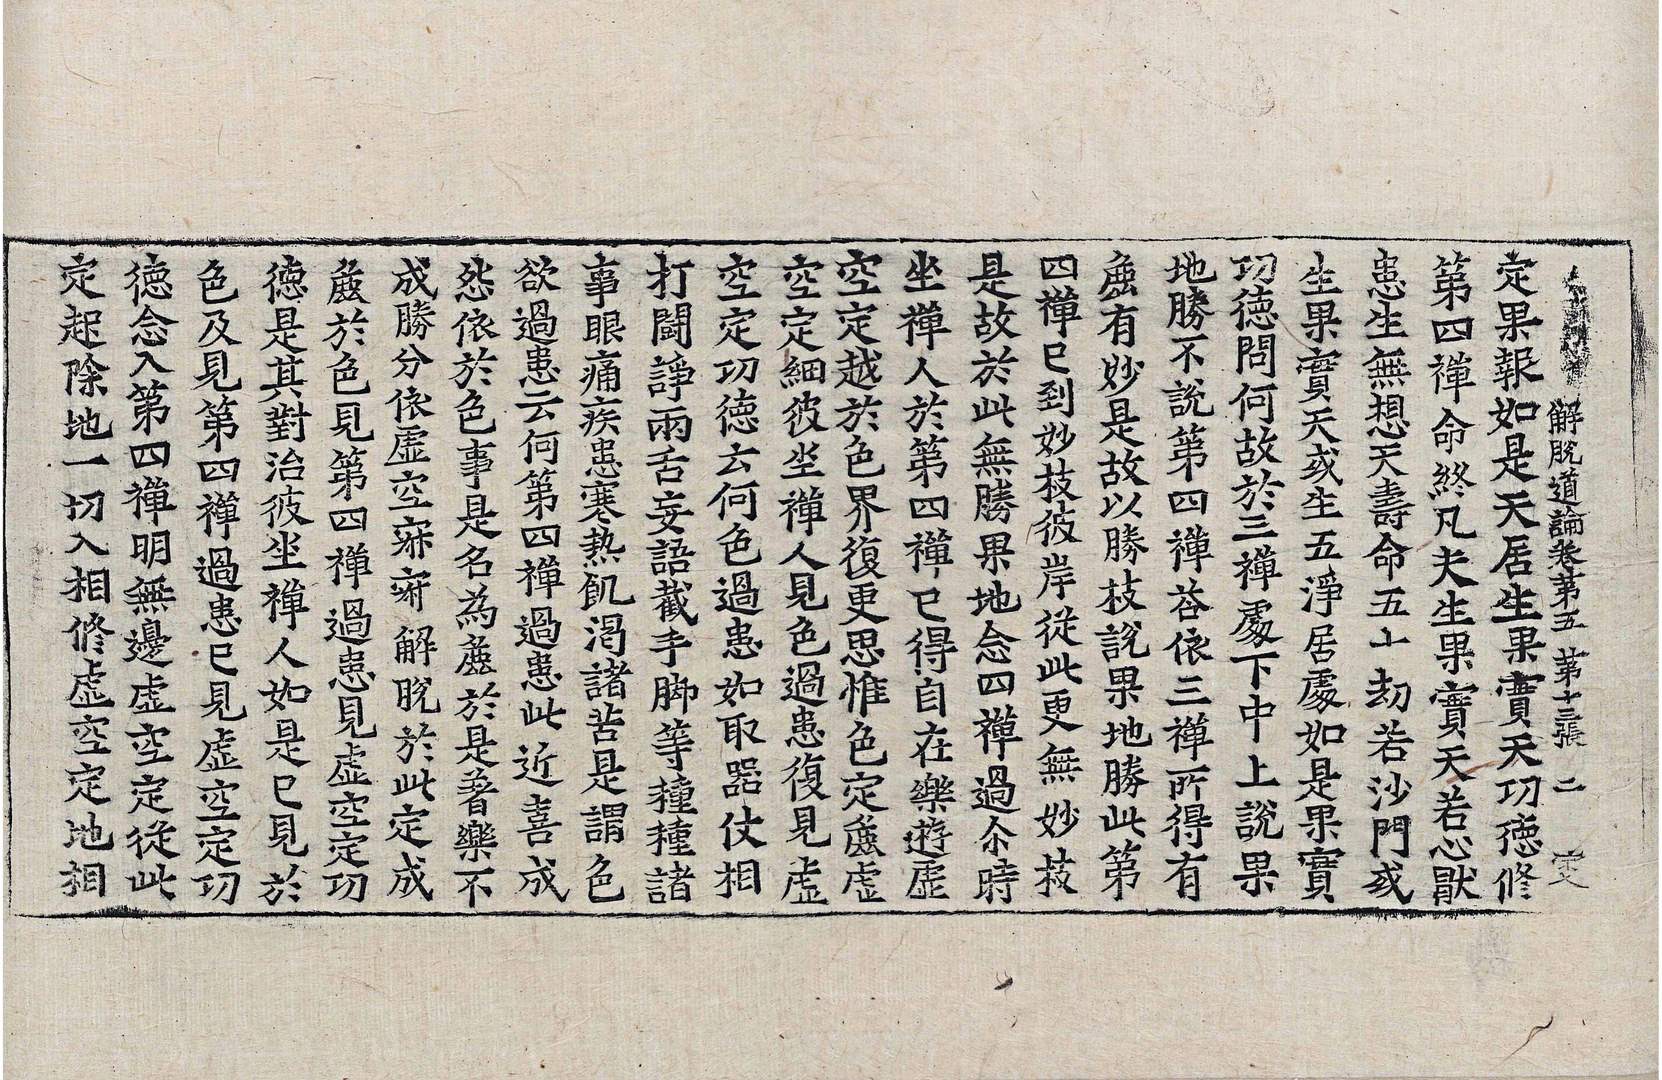 解脫道論卷第五 第十三張 二 定
定果報如是天居生果實天功德修
第四禪命終凡夫生果實天若心猒
患生無想天壽命五十劫若沙門或
生果實天或生五淨居處如是果實
功德問何故於三禪處下中上說果
地勝不說第四禪荅依三禪所得有
麁有妙是故以勝枝說果地勝此第
四禪已到妙枝彼岸從此更無妙枝
是故於此無勝果地念四禪過尒時
坐禪人於第四禪已得自在樂遊虛
空定越於色界復更思惟色定麁虛
空定細彼坐禪人見色過患復見虛
空定功德云何色過患如取器仗相
打鬪諍兩舌妄語截手脚等種種諸
事眼痛疾患寒熱飢渴諸苦是謂色
欲過患云何第四禪過患此近喜成
怨依於色事是名為麁於是著樂不
成勝分依虛空寂寂解脫於此定成
麁於色見第四禪過患見虛空定功
德是其對治彼坐禪人如是已見於
色及見第四禪過患已見虛空定功
德念入第四禪明無邊虛空定從此
定起除地一切入相修虛空定地相